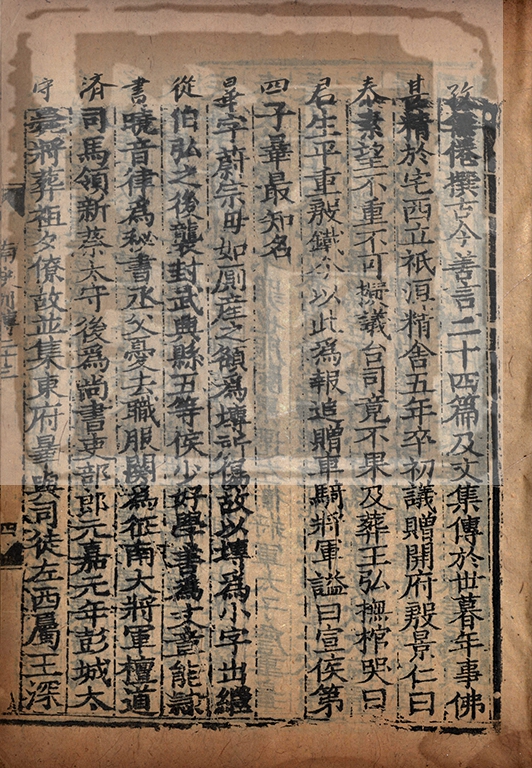 孜無倦撰古今善言二十四篇及文集傳於世暮年事佛
甚精於宅西立祇洹精舍五年卒初議贈開府殷景仁曰
泰素望不重不可擬議台司竟不果及葬王弘撫棺哭曰
君生平重殷鐵今以此為報追贈車騎將軍諡曰宣侯第
四子曅最知名
曅字蔚宗母如厠産之額為塼所傷故以塼為小字出繼
從伯弘之後襲封武興縣五等侯少好學善為文章能隷
書曉音律為秘書丞父憂去職服闋為征南大將軍檀道
済司馬領新蔡太守後為尚書吏部郎元嘉元年彭城太
薨將葬祖夕僚故並集東府曅與司徒左西屬王深
南史列傳二十三
四